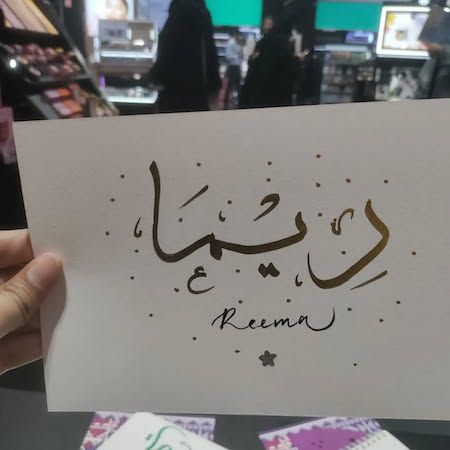 ريما
Reema